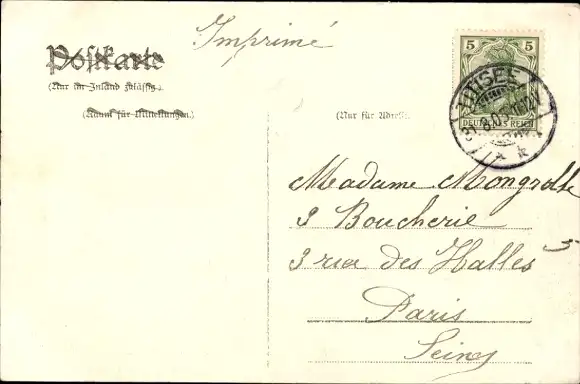 Imprimé
Postkarte
(Nur im Inland zulässig.)
(Raum für Mitteilungen.)
(Nur für Adresse.)
5 5
DEUTSCHES REICH
Madame Mongrolle
Boucherie
3 rue des Halles
Paris
Seine